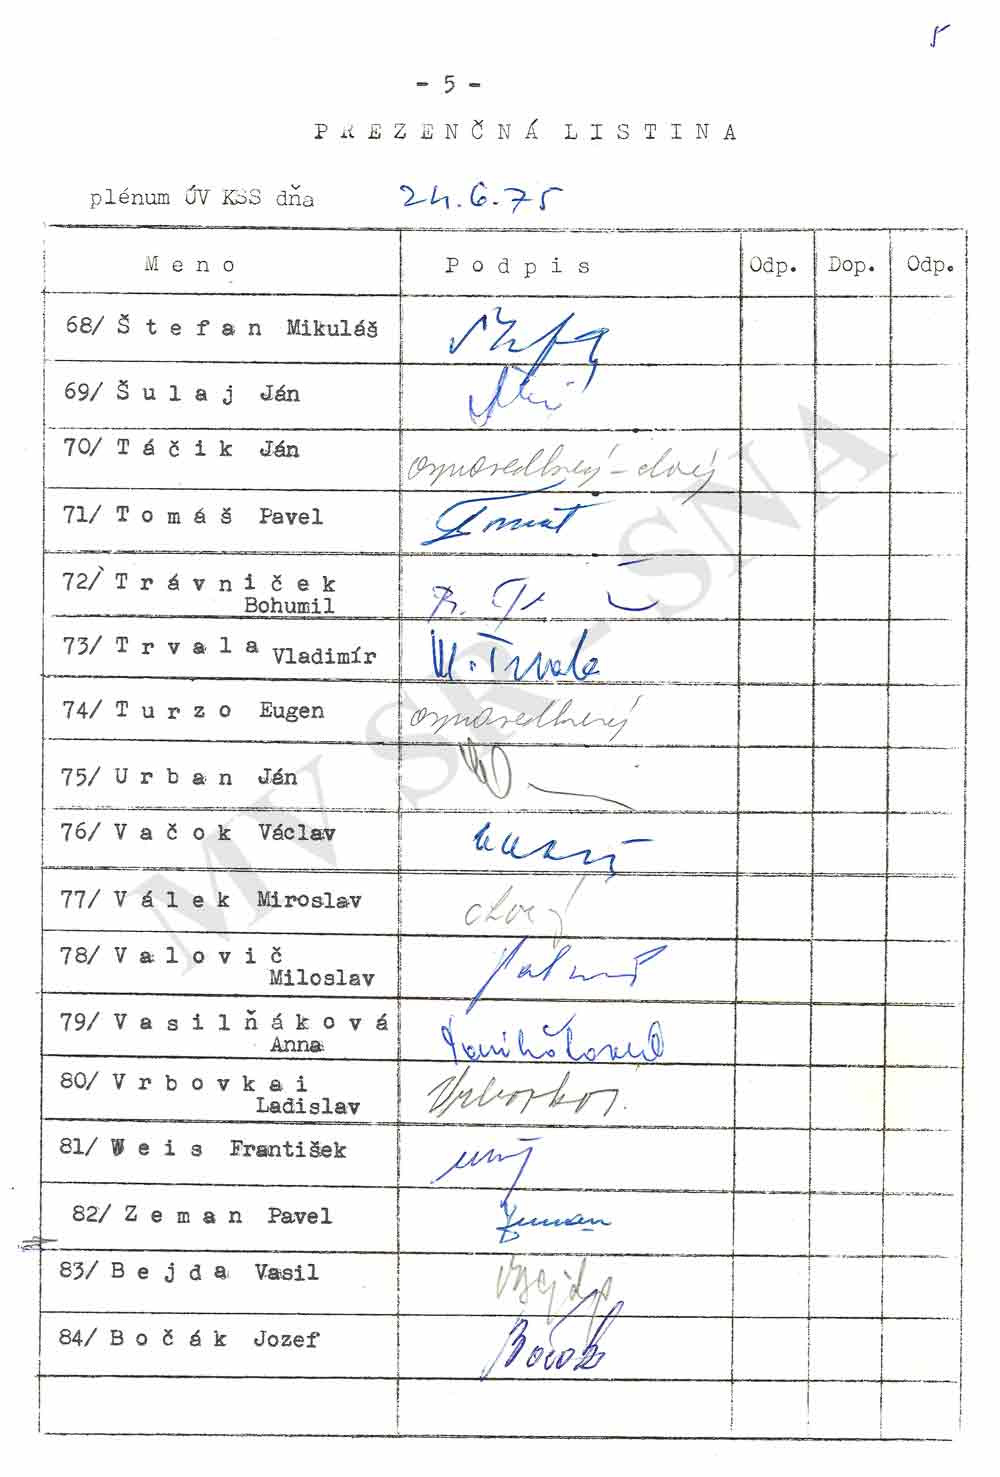 5
- 5 -
PREZENČNÁ LISTINA
plénum ÚV KSS dňa 24.6.75
Meno Podpis Odp. Dop. Odp.
68/ Štefan Mikuláš
69/ Šulaj Ján
70/ Táčik Ján ospravedlnený - chorý
71/ Tomáš Pavel
72/ Trávniček
Bohumil
73/ Trvala Vladimír Vl. Trvala
74/ Turzo Eugen ospravedlnený
75/ Urban Ján
76/ Vačok Václav
77/ Válek Miroslav chorý
78/ Valovič
Miloslav
79/ Vasilňáková
Anna
80/ Vrbovkai
Ladislav
81/ Weis František
82/ Zeman Pavel Zeman
83/ Bejda Vasil Bejda
84/ Bočák Jozef Bočák
MV SR - SNA